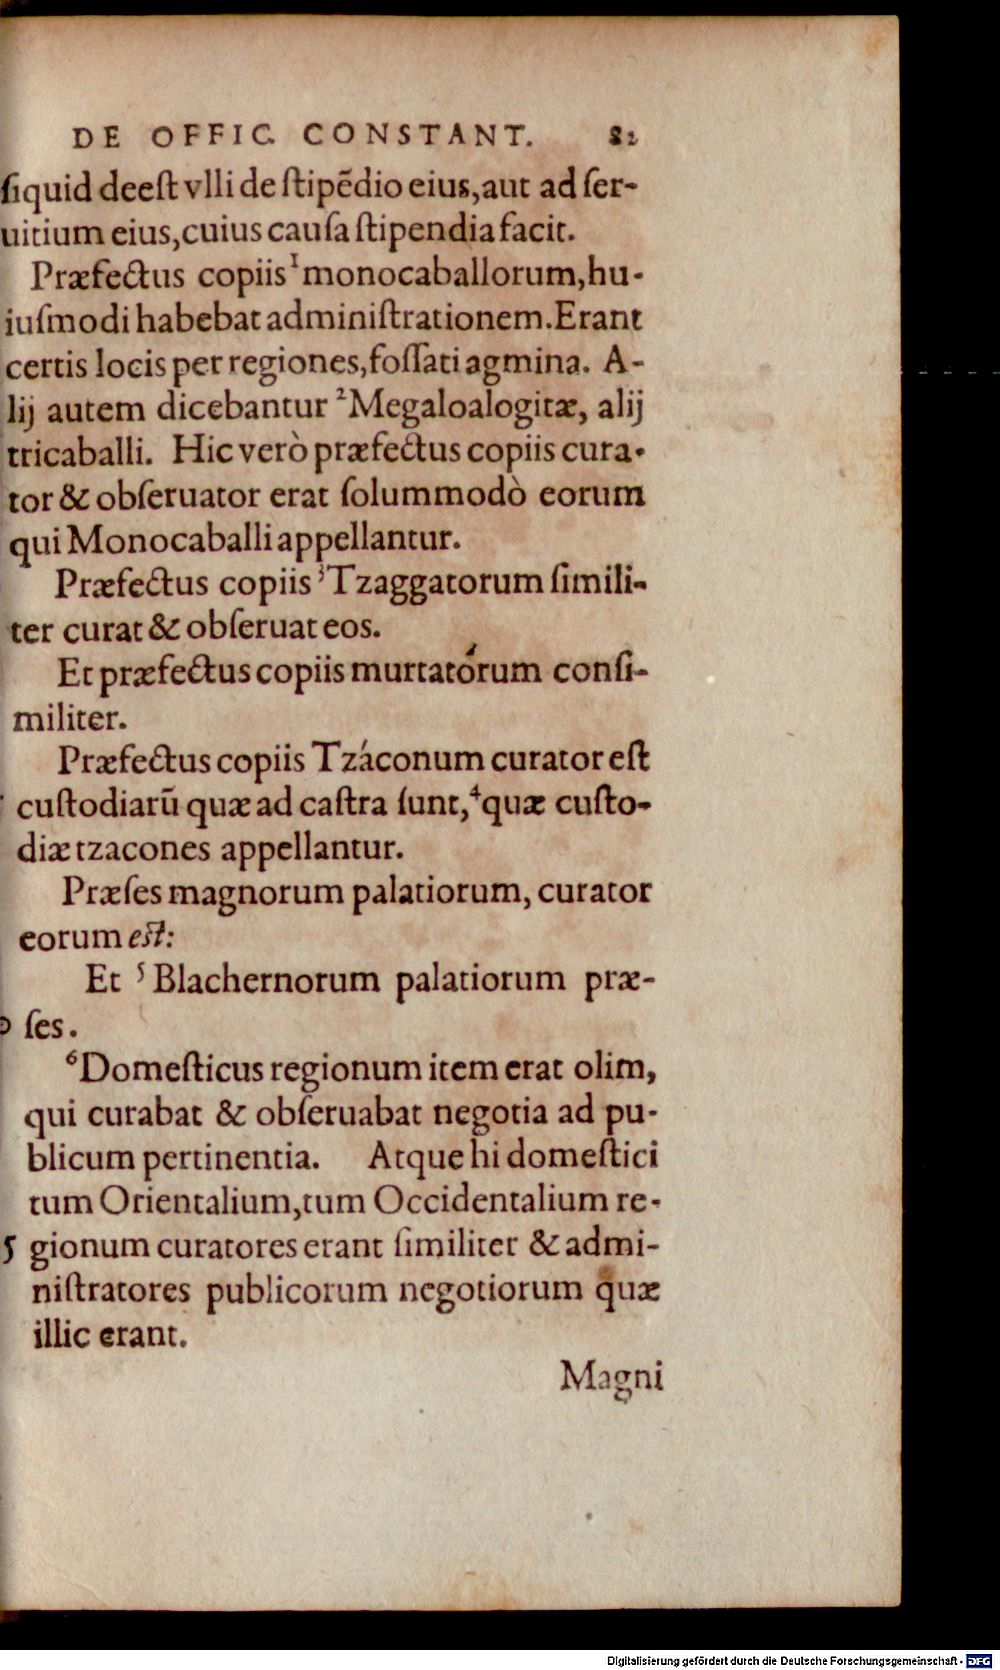 DE OFFIC. CONSTANT. 82
ſiquid deeſt vlli de ſtipẽdio eius, aut ad ſer-
uitium eius, cuius cauſa ſtipendia facit.
Præfectus copiis ¹monocaballorum, hu-
iuſmodi habebat adminiſtrationem. Erant
certis locis per regiones, foſſati agmina. A-
lij autem dicebantur ²Megaloalogitæ, alij
tricaballi. Hic verò præfectus copiis cura-
tor & obſeruator erat ſolummodò eorum
qui Monocaballi appellantur.
Præfectus copiis ³Tzaggatorum ſimili-
ter curat & obſeruat eos.
Et præfectus copiis murtatórum conſi-
militer.
Præfectus copiis Tzáconum curator eſt
cuſtodiarũ quæ ad caſtra ſunt, ⁴quæ cuſto-
diæ tzacones appellantur.
Præſes magnorum palatiorum, curator
eorum eſt:
Et ⁵Blachernorum palatiorum præ-
ſes.
⁶Domeſticus regionum item erat olim,
qui curabat & obſeruabat negotia ad pu-
blicum pertinentia. Atque hi domeſtici
tum Orientalium, tum Occidentalium re-
5 gionum curatores erant ſimiliter & admi-
niſtratores publicorum negotiorum quæ
illic erant.
Magni
Digitalisierung gefördert durch die Deutsche Forschungsgemeinschaft - DFG